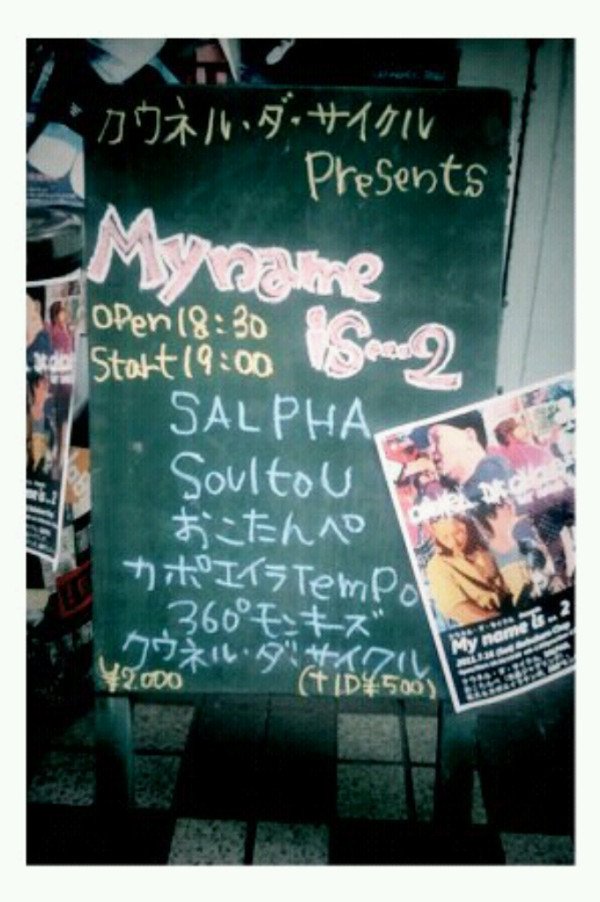 クウネル・ダ・サイクル
Presents
My name
is...2
open 18:30
Start 19:00
SALPHA
SoultoU
おこたんペ
カポエイラTempo
360°モンキーズ
クウネル・ダ・サイクル
¥2.000
(+1D¥500)
My name is .. 2